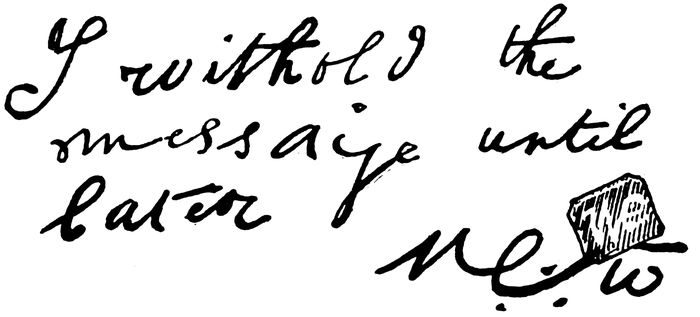 I withold the
messaige until
later